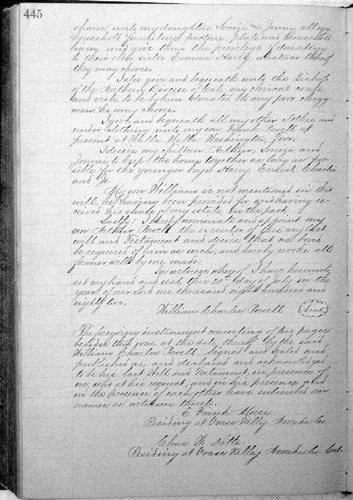 445
spaces unto my daughters Louiza and Jennie all my
household furniture pictures plate and household
linen and give them the privilege of donating
to their elder sister whatever they
may choose.
I also give and bequeath unto the Bishop
of the Northern Diocese of Cal. my clerical
to be by him donated to any poor clergy-
man he may choose.
I give and bequeath all my other clothes and
under clothing unto my son Frank Powell at
present at Walla Walla Washington Ter.
I desire my children Arthur, Louiza and
Jennie to keep the home together as long as pos-
sible for the younger boys Harry, Ernest, Charles
and
My son William is not mentioned in this
will he having been provided for and having re-
ceived his share of my estate in the past.
Lastly: I hereby nominate and appoint my
son Arthur Powell the executor of this my last
will and Testament and desire that no bond
be required of him as such, and hereby revoke all
former wills by me made.
In witness whereof I have hereunto
set my hand and seal this 20th day of July in the
year of our Lord one thousand eight hundred and
eighty two.
William Charles Powell (Seal)
The foregoing instrument consisting of two pages
besides this was at the date thereof by the said
William Charles Powell, signed and sealed and
published as, and declared and acknowledged
to be his last Will and Testament, in presence of
us, who at his request, and in his presence and
in the presence of each other have subscribed our
names as witnesses thereto.
E. Frank
Residing at Grass Valley Nevada Co
Chas W.
Residing at Grass Valley, Nevada Co. Cal.